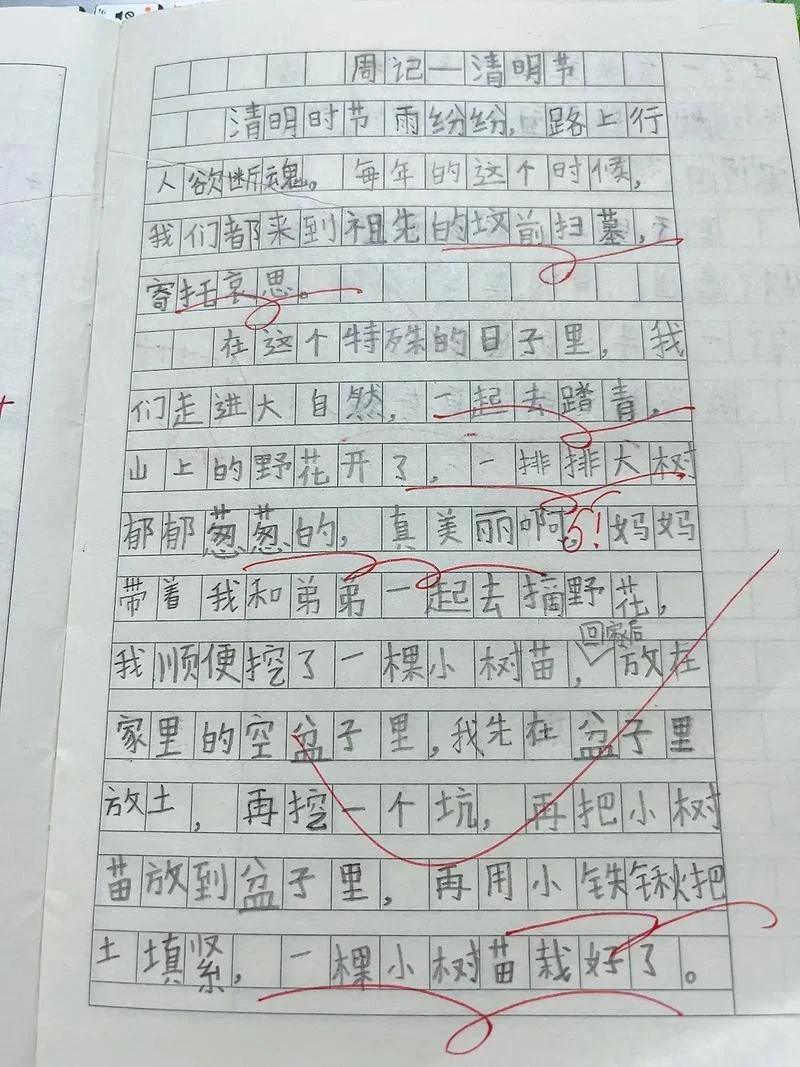 周记—清明节
清明时节雨纷纷,路上行
人欲断魂。每年的这个时候,
我们都来到祖先的坟前扫墓,
寄托哀思。
在这个特殊的日子里,我
们走进大自然,一起去踏青。
山上的野花开了,一排排大树
郁郁葱葱的,真美丽啊!妈妈
带着我和弟弟一起去摘野花,
回家后
我顺便挖了一棵小树苗,放在
家里的空盆子里,我先在盆子里
放土,再挖一个坑,再把小树
苗放到盆子里,再用小铁锹把
土填紧,一棵小树苗栽好了。